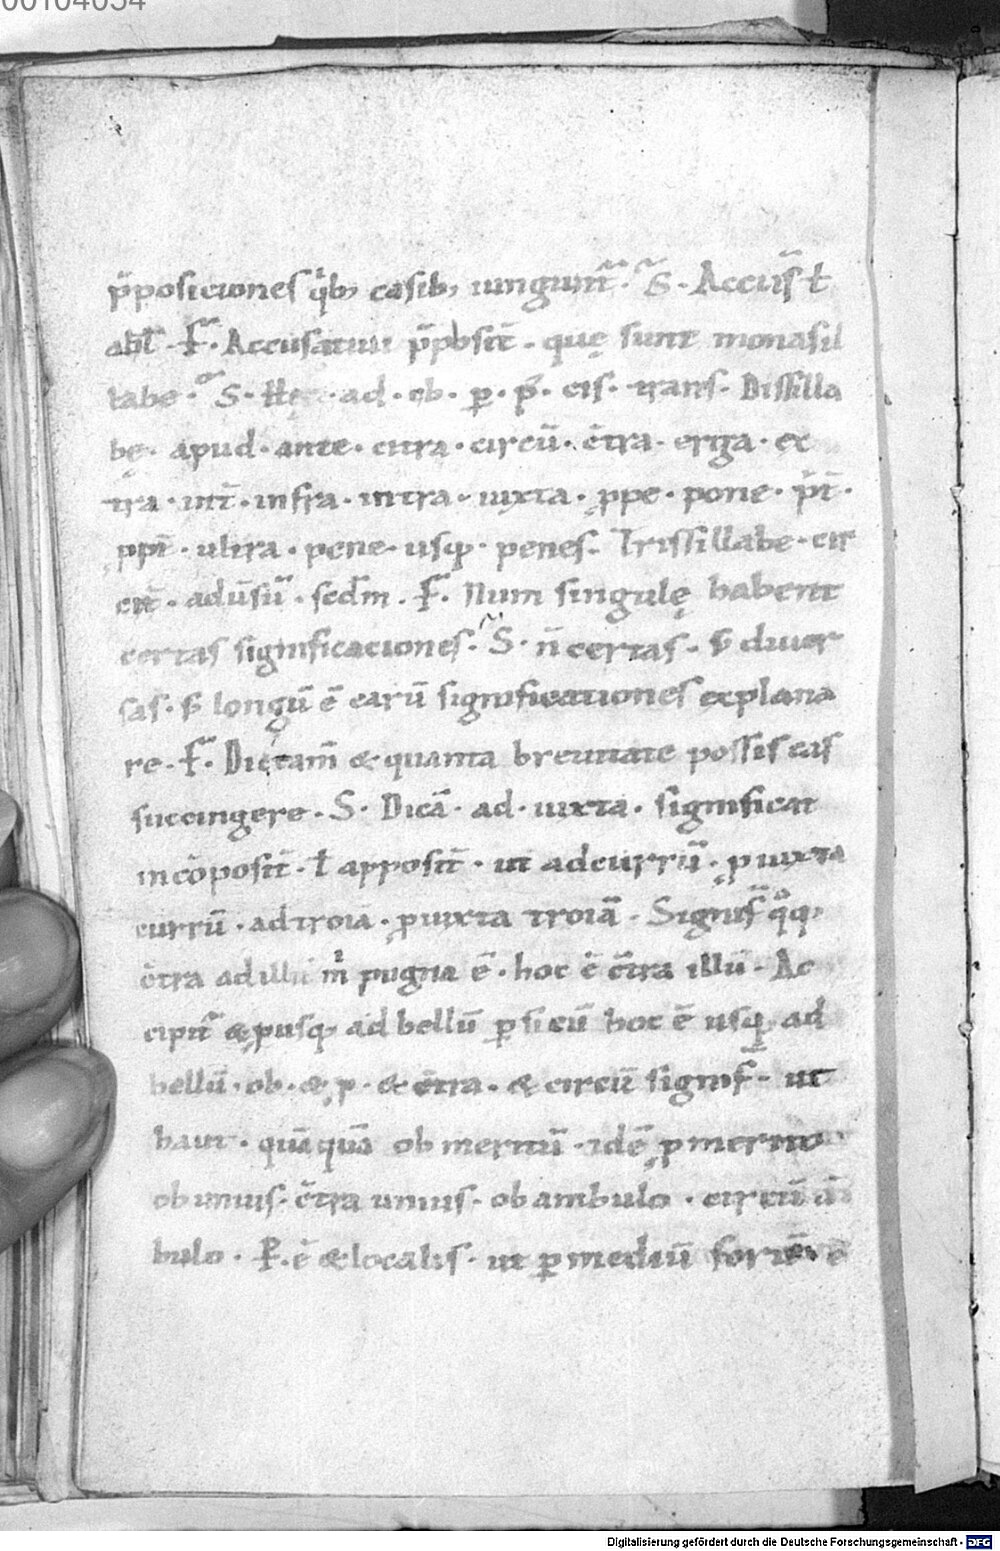 00104054
p̄posiciones q̇b; casib; iungunt̄. S. Accus̄ ł
abl̄. F. Accusatiui p̄posit̄. quę sunt monasil
labe. S. Hęc ad. ob. ꝑ. p̄. cis. trans. Dissilla
bę. apud. ante. citra. circū. c̄tra. erga. ex
tra. int̄. infra. intra. iuxta. ꝓpe. pone. p̄t̄.
ꝓpt̄. ultra. pene. usq;. penes. Trissillabe. cir
cit̄. aduersū. scdm̄. F. Num singulę habent
certas significaciones. S. n̄ certas. s; diuer
sas. s; longū ē earū significationes explana
re. F. Dic tam̄ & quanta breuitate possis eas
succingere. S. Dicā. ad. iuxta. significat
in cōposit̄. ł apposit̄. ut ad currū. ꝓ iuxta
currū. ad troiā. ꝓ iuxta troiā. Signif̄ q̊q;
c̄tra ad illū m̄ pugna ē. hoc ē c̄tra illū. Ac
cipit̄ & ꝓ usq; ad bellū ꝑsicū hoc ē usq; ad
bellū. ob. & ꝓ. & c̄tra. & circū signif̄. ut
haut. quāquā ob meritū. idē ꝓ merito
ob unius. c̄tra unius. ob ambulo. circū ā
bulo. P. ē & localis. ut ꝑ mediū
Digitalisierung gefördert durch die Deutsche Forschungsgemeinschaft - DFG